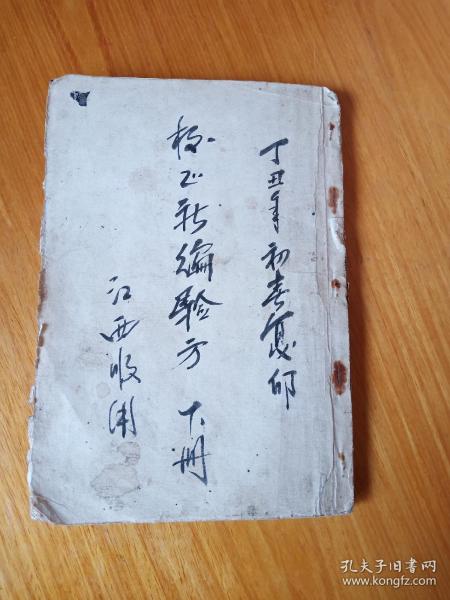 丁丑年初春复印
校正新编验方 下册
江西
孔夫子旧书网
www.kongfz.com